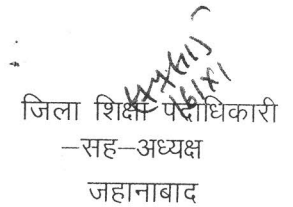 जिला शिक्षा पदाधिकारी
–सह–अध्यक्ष
जहानाबाद